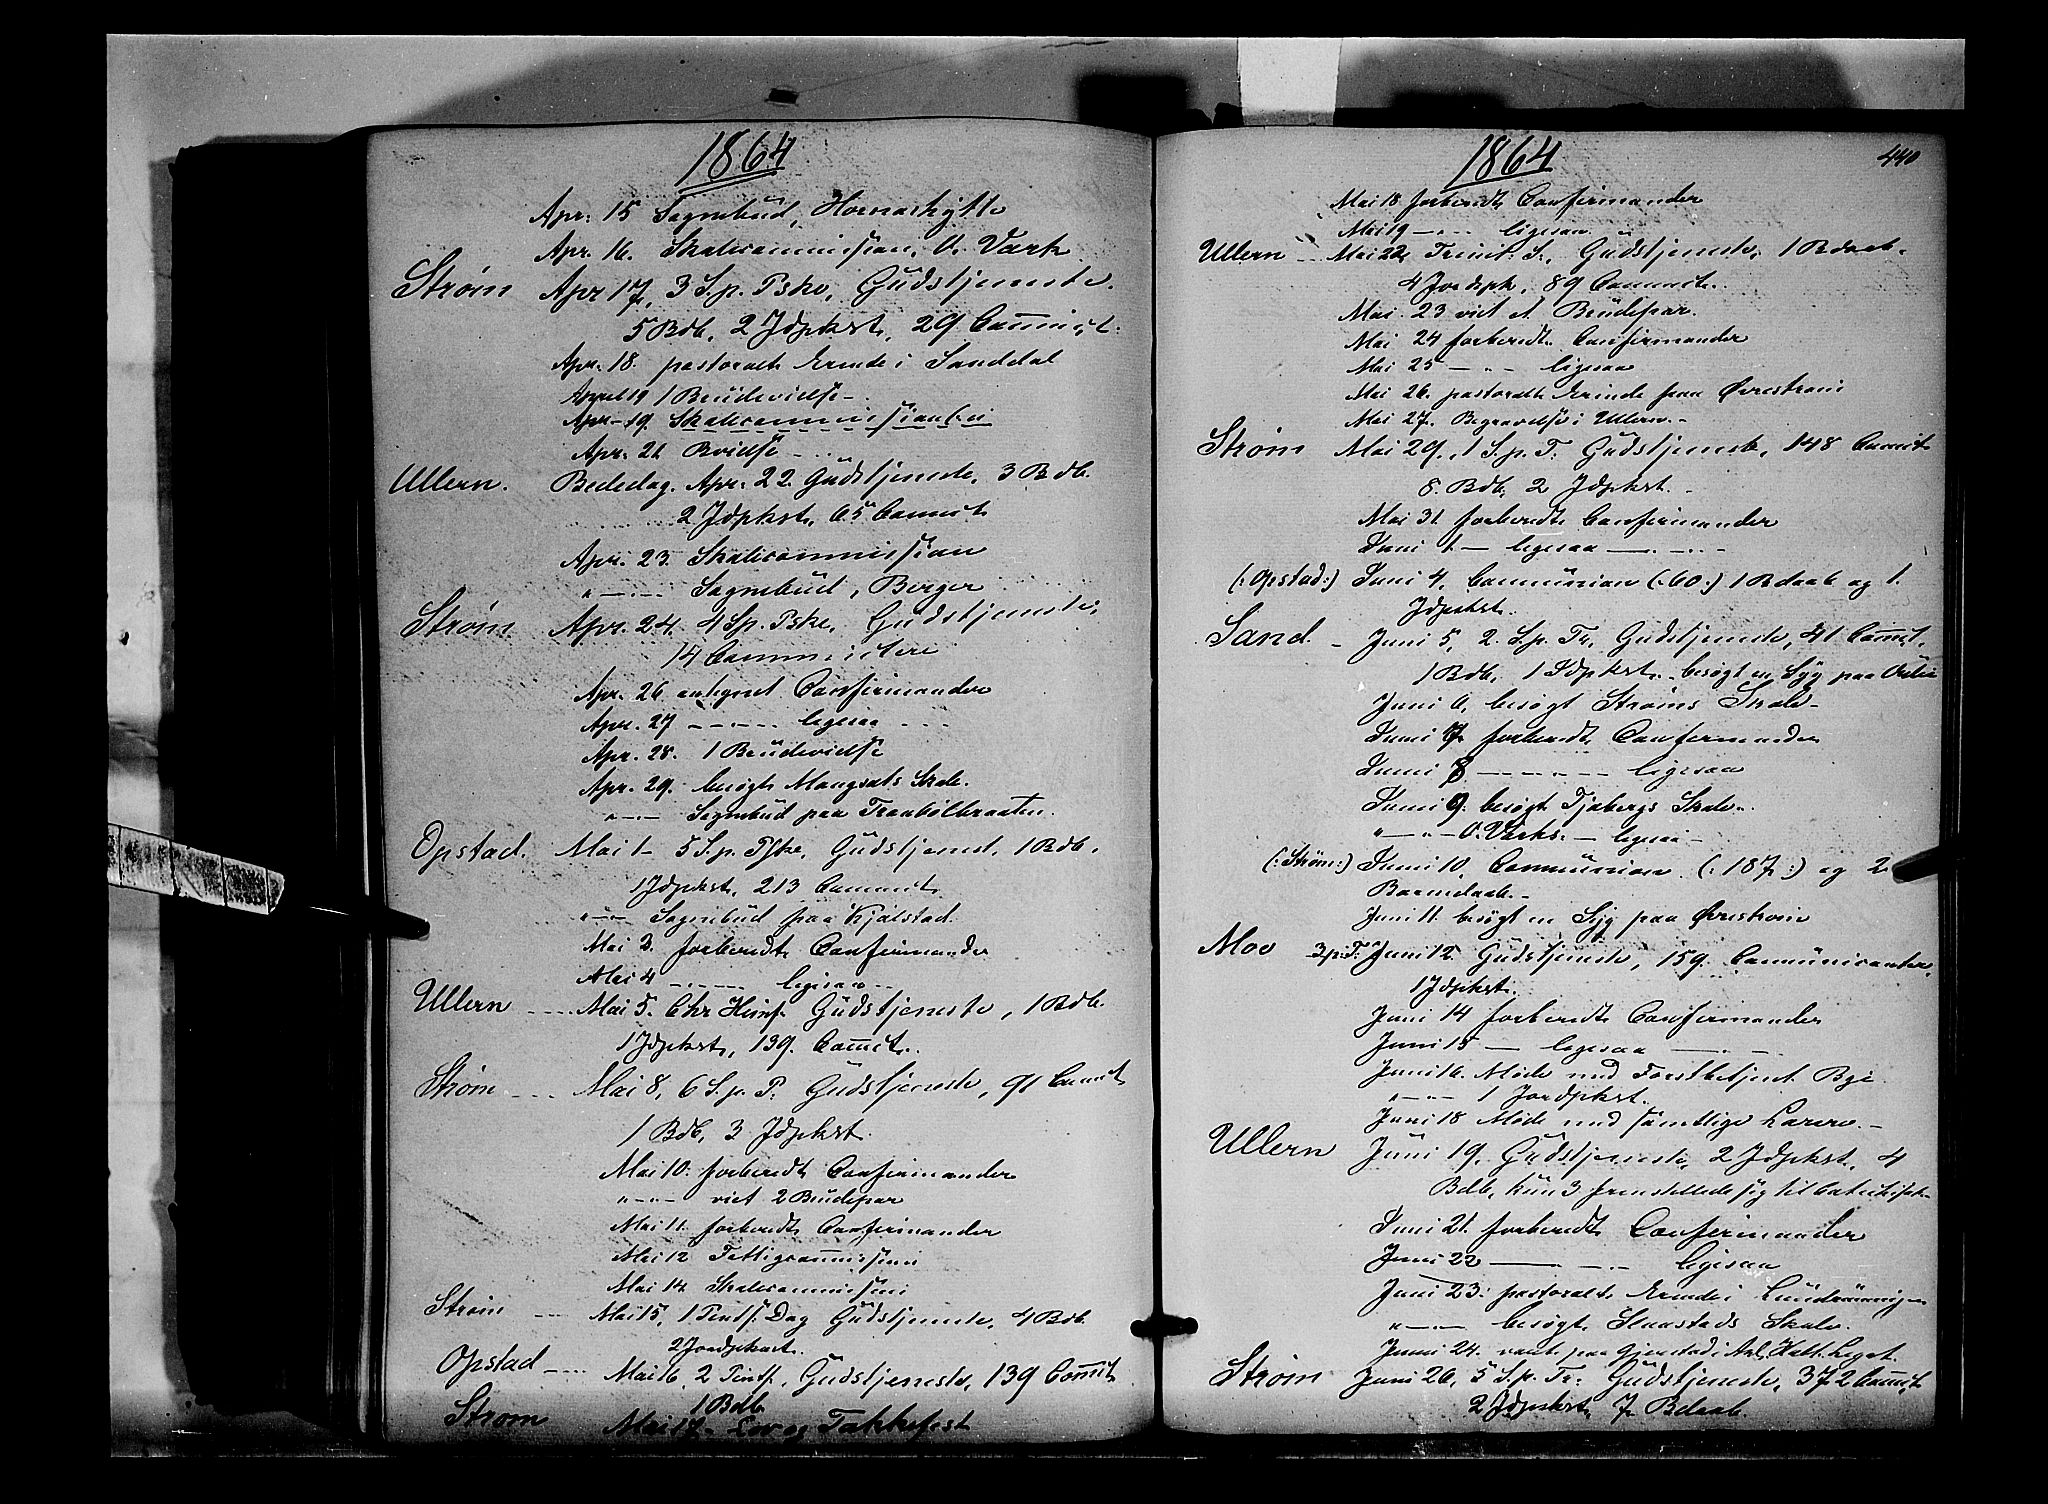 1864
Apr. 15 Sognebud, Hornashytte
Apr. 16. Skolecommission, O. Værk
Strøm Apr 17, 3 S. p. Pske, Gudstjeneste.
5 Bdb, 2 Jdpkst, 29 Commct.
Apr. 18. pastoralt Erinde i Sanddal
April 19 1 Brudevielse
Apr. 19. Skolecommission
Apr. 21. Bvielse
Ullern. Bededag. Apr. 22. Gudstjeneste, 3 Bdb.
2 Jdpkst, 65 Commct
Apr. 23. Skolecommission
" — Sognebud, Berger
Strøm Apr. 24. 4 S p. Pske, Gudstjeneste,
14 Commcistere
Apr. 26 antegnet Confirmander
Apr. 27 — ligesaa
Apr. 28. 1 Brudevielse
Apr. 29. besøgt Mangsets Skole.
" — Sognebud paa Traabølbraaten.
Opstad. Mai 1 - 5 S. p. Pske, Gudstjenest, 1 Bdb,
1 Jdpkst, 213 Commct
" — Sognebud paa Kjølstad.
Mai 3. forberedt Confirmander
Mai 4 — ligesaa
Ullern — Mai 5. Chr Himf. Gudstjeneste, 1 Bdb.
1 Jdpkst, 139. Commct.
Strøm — Mai 8, 6 S. p. P. Gudstjeneste, 91 Commct
1 Bdb, 3 Jdpkst.
Mai 10. forberedt Confirmander
" — viet 2 Brudepar
Mai 11. forberedt Confirmander
Mai 12 Fattigcommission
Mai 14. Skolecommission
Strøm — Mai 15, 1 Pintsf. Dag Gudstjeneste, 4 Bdb.
2 Jordpkast.
Opstad — Mai 16, 2 Pintsf. Gudstjeneste, 139 Commct.
1 Bdb
Strøm Mai 17. Lov og Takkefest
1864
440
Mai 18 forberedt Confirmander
Mai 19 — ligesaa
Ullern — Mai 22, Trinit. S., Gudstjeneste, 1 Bdaab.
4 Jordpk, 89 Commct.
Mai 23 viet et Brudepar.
Mai 24 forberedt Confirmander
Mai 25 — ligesaa
Mai 26. pastoralt Erinde paa Øvrestrøm
Mai 27. Begravelse i Ullern.
Strøm Mai 29., 1 S. p. T. Gudstjeneste, 148 Commct
8. Bdb, 2 Jdpkst.
Mai 31. forberedt Confirmander
Juni 1. — ligesaa —
(:Opstad:) Juni 4, Communion (:60:) 1 Bdaab og 1.
Jdpkst.
Sand — Juni 5, 2. S. p. Tr, Gudstjeneste, 41 Commct.
1 Bdb, 1 Jdpkst. besøgt en Syg paa
Juni 6, besøgt Strøms Skole
Juni 7. forberedt Confirmander
Juni 8 — ligesaa
Juni 9. besøgt Tjabergs Skole.
" — O. Værks. — ligesaa —
(:Strøm:) Juni 10, Communion (:187:) og 2
Barnedaab.
Juni 11. besøgt en Syg paa Øvrestrøm
Moe 3 p: T. Juni 12. Gudstjeneste, 159. Communicanter,
1 Jdpkst.
Juni 14 forberedt Confirmander
Juni 15 — ligesaa —
Juni 16. Møde med Forstbetjent Bye
" — 1 Jordpkst.
Juni 18 Møde med samtlige Lærere.
Ullern Juni 19. Gudstjeneste, 2 Jdpkst, 4
Bdb, kun 3 fremstillede sig til Catechisat.
Juni 21. forberedt Confirmander
Juni 22 — ligesaa
Juni 23. pastoralt Erinde i
" — besøgt Skole.
Juni 24. vært paa Gjerstad i Anl.
Strøm Juni 26, 5 S. p. Tr: Gudstjeneste, 372 Commct
2 Jdpkst, 7 Bdaab.